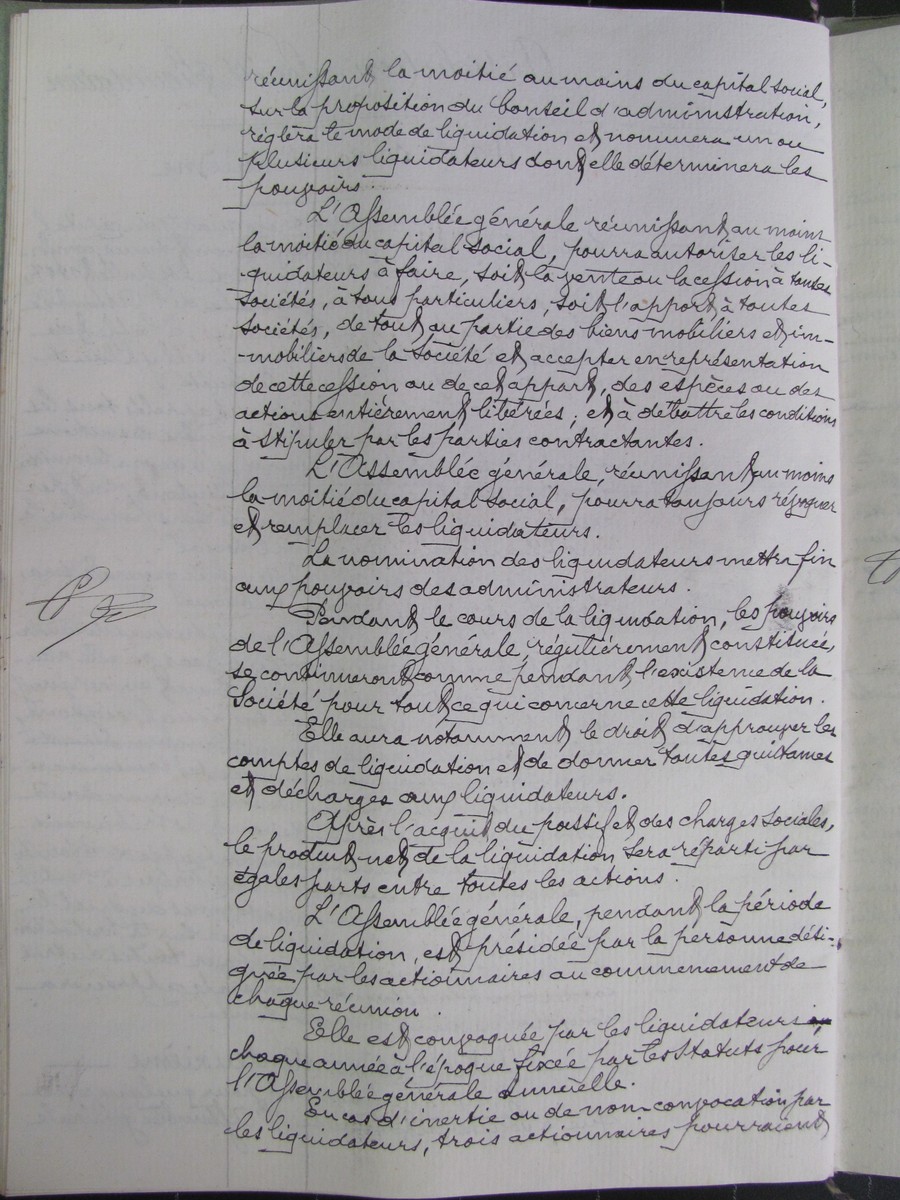 réunissant la moitié au moins du capital social,
sur la proposition du Conseil d'administration,
règlera le mode de liquidation et nommera un ou
plusieurs liquidateurs dont elle déterminera les
pouvoirs.
L'Assemblée générale réunissant au moins
la moitié du capital social, pourra autoriser les li-
quidateurs à faire, soit la vente ou la cession à toutes
sociétés, à tous particuliers, soit l'apport à toutes
sociétés, de tout ou partie des biens mobiliers et im-
-mobiliers de la Société et accepter en représentation
de cette cession ou de cet apport, des espèces ou des
actions entièrement libérées; et à débattre les conditions
à stipuler par les parties contractantes.
L'Assemblée générale, réunissant au moins
la moitié du capital social, pourra toujours révoquer
et remplacer les liquidateurs.
La nomination des liquidateurs mettra fin
aux pouvoirs des administrateurs.
Pendant le cours de la liquidation, les pouvoirs
de l'Assemblée générale, régulièrement constituée,
se continueront comme pendant l'existence de la
Société pour tout ce qui concerne cette liquidation.
Elle aura notamment le droit d'approuver les
comptes de liquidation et de donner toutes quittances
et décharges aux liquidateurs.
Après l'acquit du passif et des charges sociales,
le produit net de la liquidation sera réparti par
égales parts entre toutes les actions.
L'Assemblée générale, pendant la période
de liquidation, est présidée par la personne dési-
gnée par les actionnaires au commencement de
chaque réunion.
Elle est convoquée par les liquidateurs
chaque année à l'époque fixée par les Statuts pour
l'Assemblée générale annuelle.
En cas d'inertie ou de non-convocation par
les liquidateurs, trois actionnaires pourraient